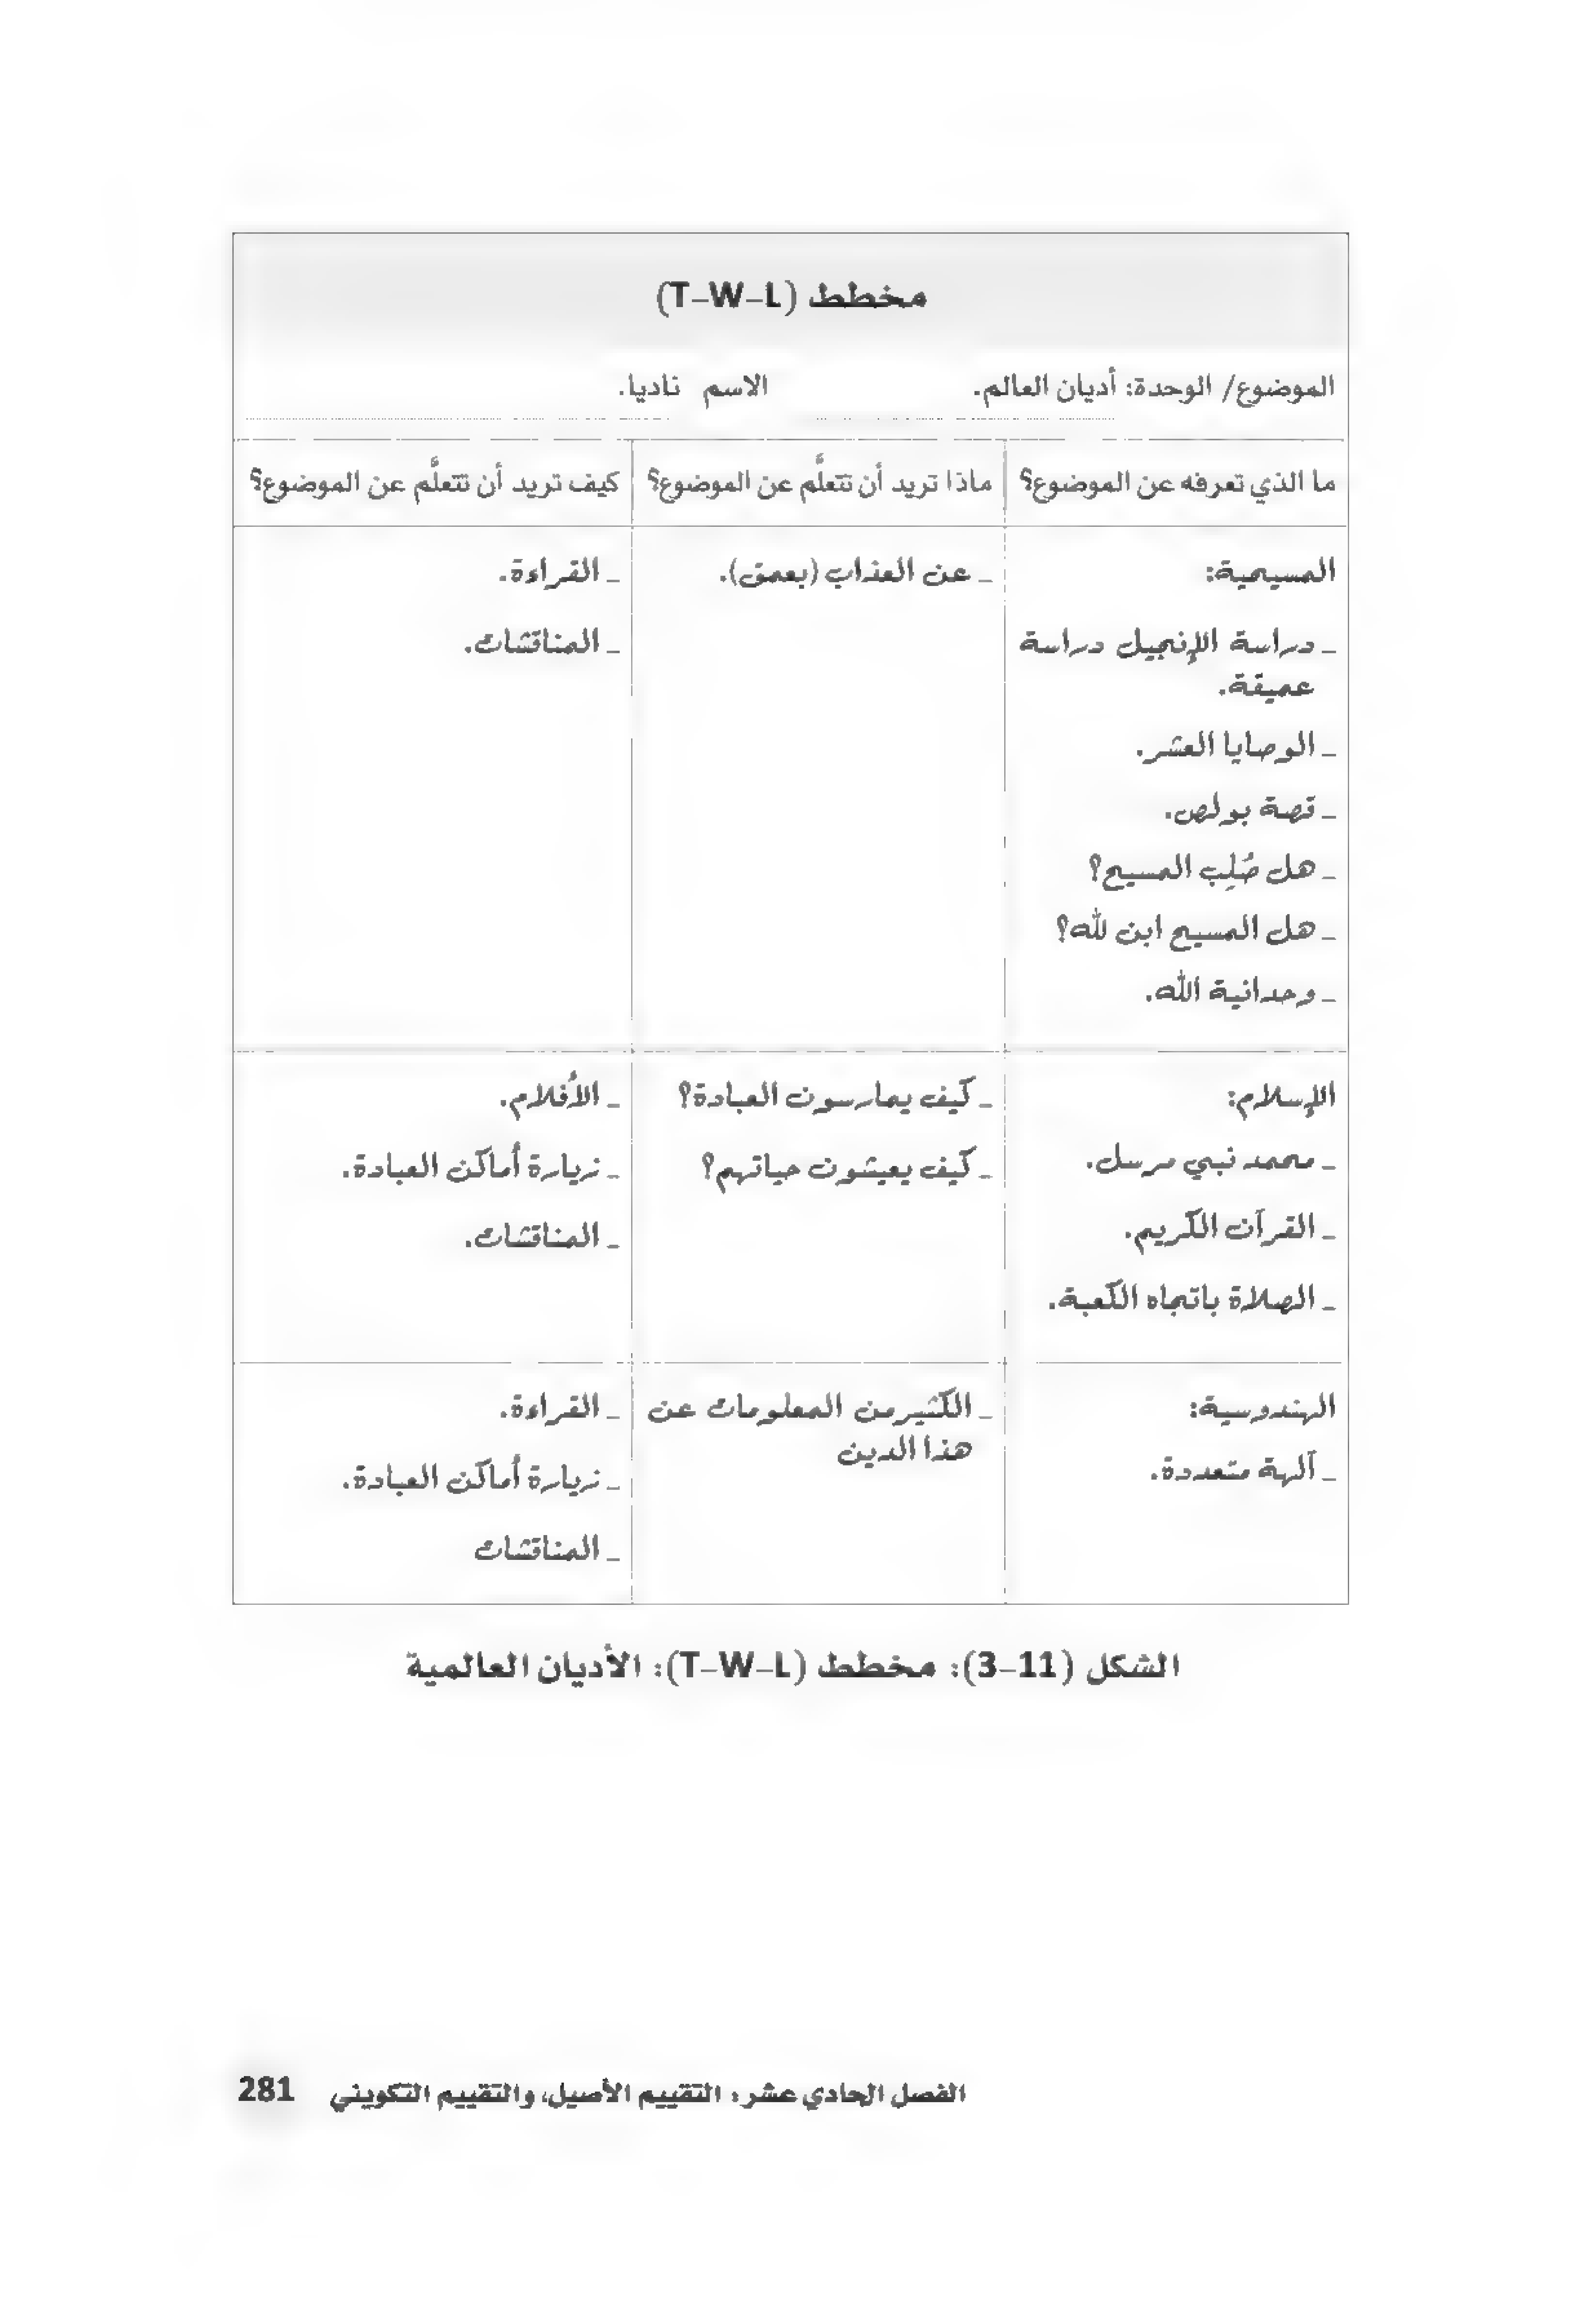 مخطط (T–W–L)
الموضوع/ الوحدة: أديان العالم. الاسم ناديا.
ما الذي تعرفه عن الموضوع؟ ماذا تريد أن تتعلَّم عن الموضوع؟ كيف تريد أن تتعلَّم عن الموضوع؟
المسيحية:
_ دراسة الإنجيل دراسة
عميقة.
_ الوصايا العشر.
_ قصة بولص.
_ هل صُلِب المسيح؟
_ هل المسيح ابن لله؟
_ وحدانية الله.
_ عن العذاب (بعمق).
_ القراءة.
_ المناقشات.
الإسلام:
_ محمد نبي مرسل.
_ القرآن الكريم.
_ الصلاة باتجاه الكعبة.
_ كيف يمارسون العبادة؟
_ كيف يعيشون حياتهم؟
_ الأفلام.
_ زيارة أماكن العبادة.
_ المناقشات.
الهندوسية:
_ آلهة متعددة.
_ الكثير من المعلومات عن
هذا الدين
_ القراءة.
_ زيارة أماكن العبادة.
_ المناقشات
الشكل (11–3): مخطط (T–W–L): الأديان العالمية
الفصل الحادي عشر: التقييم الأصيل، والتقييم التكويني 281